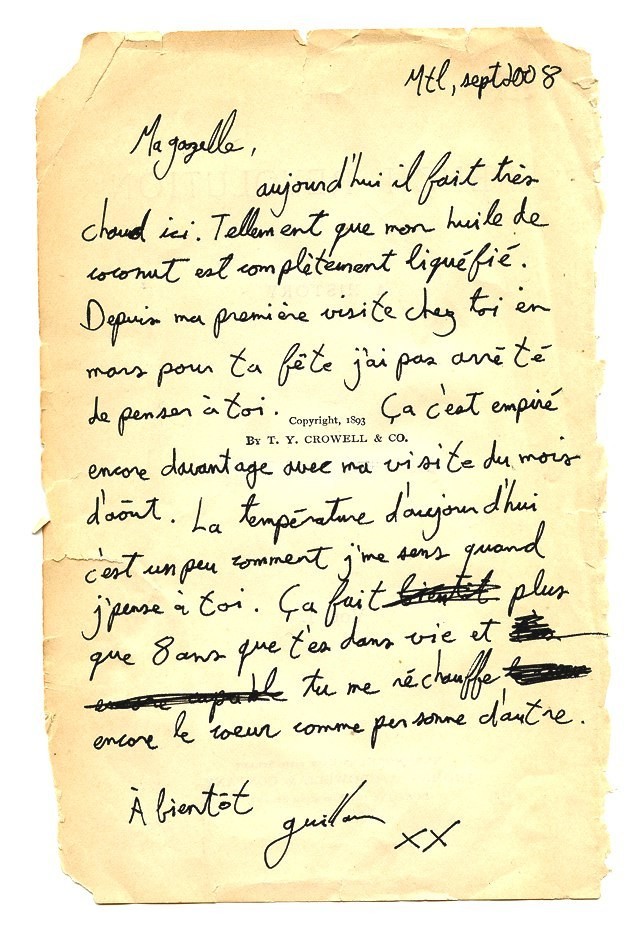 Mtl, sept 2008
Ma gazelle,
aujourd'hui il fait très
chaud ici. Tellement que mon huile de
coconut est complètement liquéfié.
Depuis ma première visite chez toi en
mars pour ta fête j'ai pas arrêté
de penser à toi. Ça c'est empiré
Copyright, 1893
By T. Y. CROWELL & CO.
encore davantage avec ma visite du mois
d'août. La température d'aujourd'hui
c'est un peu comment j'me sens quand
j'pense à toi. Ça fait bientôt plus
que 8 ans que t'es dans vie et
encore capable tu me réchauffe
encore le coeur comme personne d'autre.
À bientôt
guillau
xx